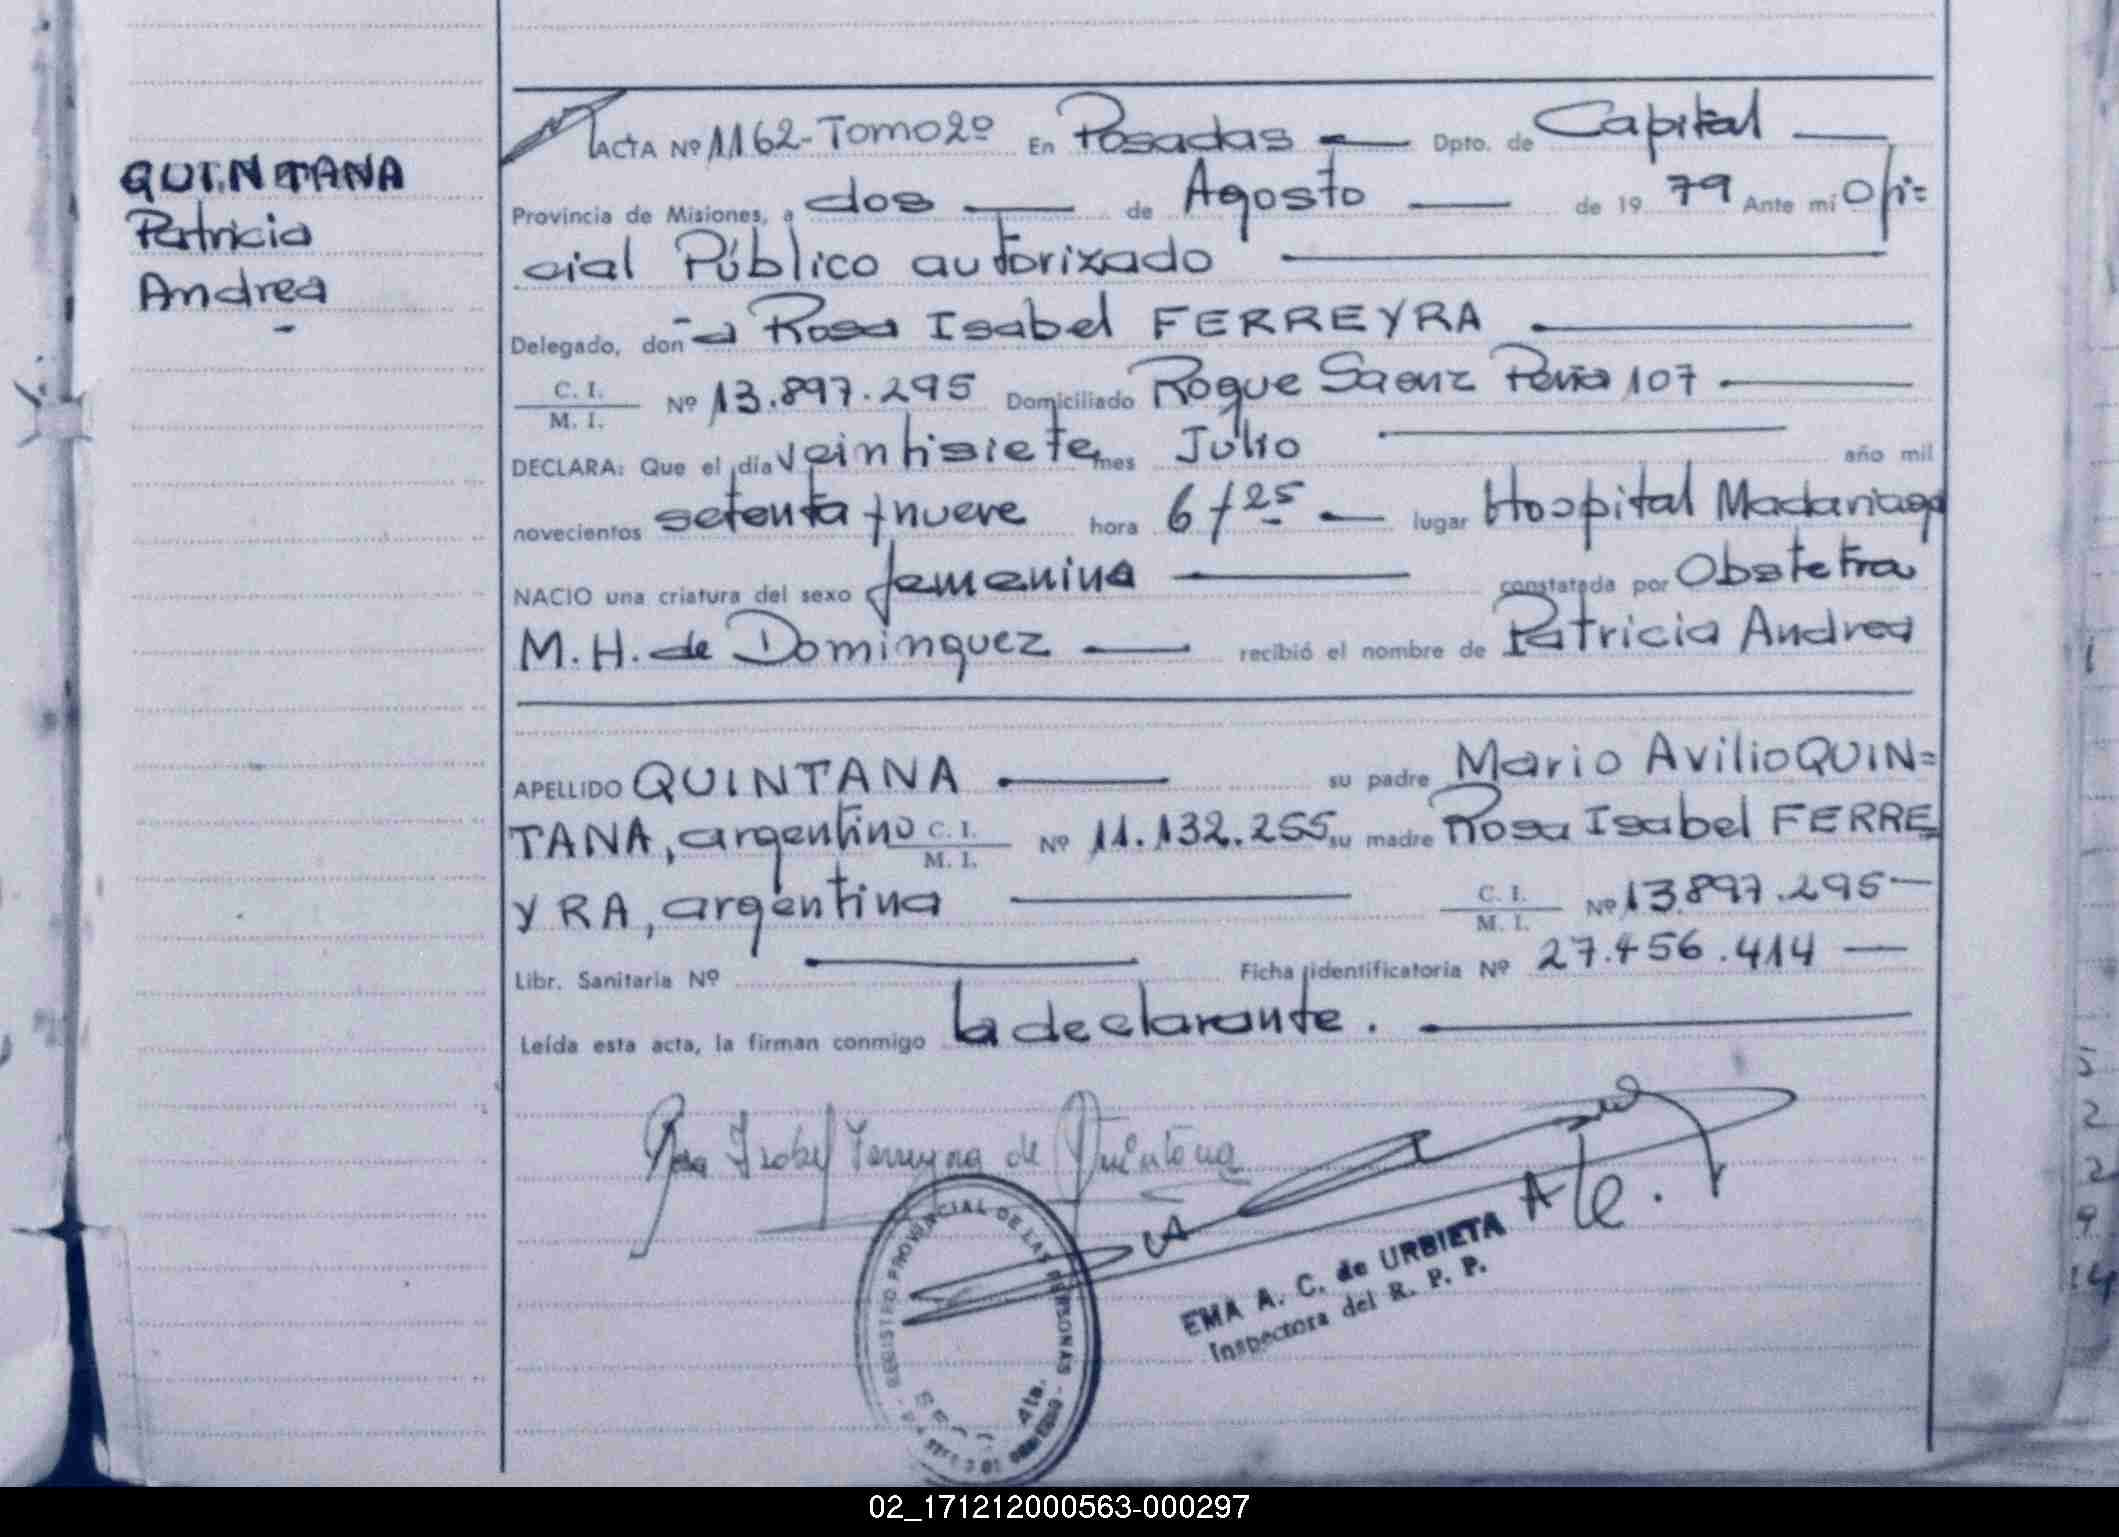 QUINTANA
Patricia
Andrea
ACTA Nº 1162-Tomo 2º En Posadas Dpto. de Capital
Provincia de Misiones, a dos de Agosto de 19 79 Ante mí Ofi=
cial Público autorizado
Delegado, don-a Rosa Isabel FERREYRA
C. I.
M. I. Nº 13.897.295 Domiciliado Roque Saenz Peña 107
DECLARA: Que el día veintisiete mes Julio año mil
novecientos setenta y nueve hora 6 y 25 lugar Hospital Madariaga
NACIO una criatura del sexo femenina constatada por Obstetra
M. H. de Dominguez recibió el nombre de Patricia Andrea
APELLIDO QUINTANA su padre Mario Avilio QUIN=
TANA, argentino C. I. M. I. Nº 11.132.255 su madre Rosa Isabel FERRE
YRA, argentina C. I. M. I. Nº 13.897.295
Libr. Sanitaria Nº Ficha identificatoria Nº 27.456.414
Leída esta acta, la firman conmigo la declarante.
Rosa Isabel Ferreyra de Quintana
REGISTRO PROVINCIAL DE LAS PERSONAS
EMA A. C. de URBIETA
Inspectora del R. P. P.
02_171212000563-000297